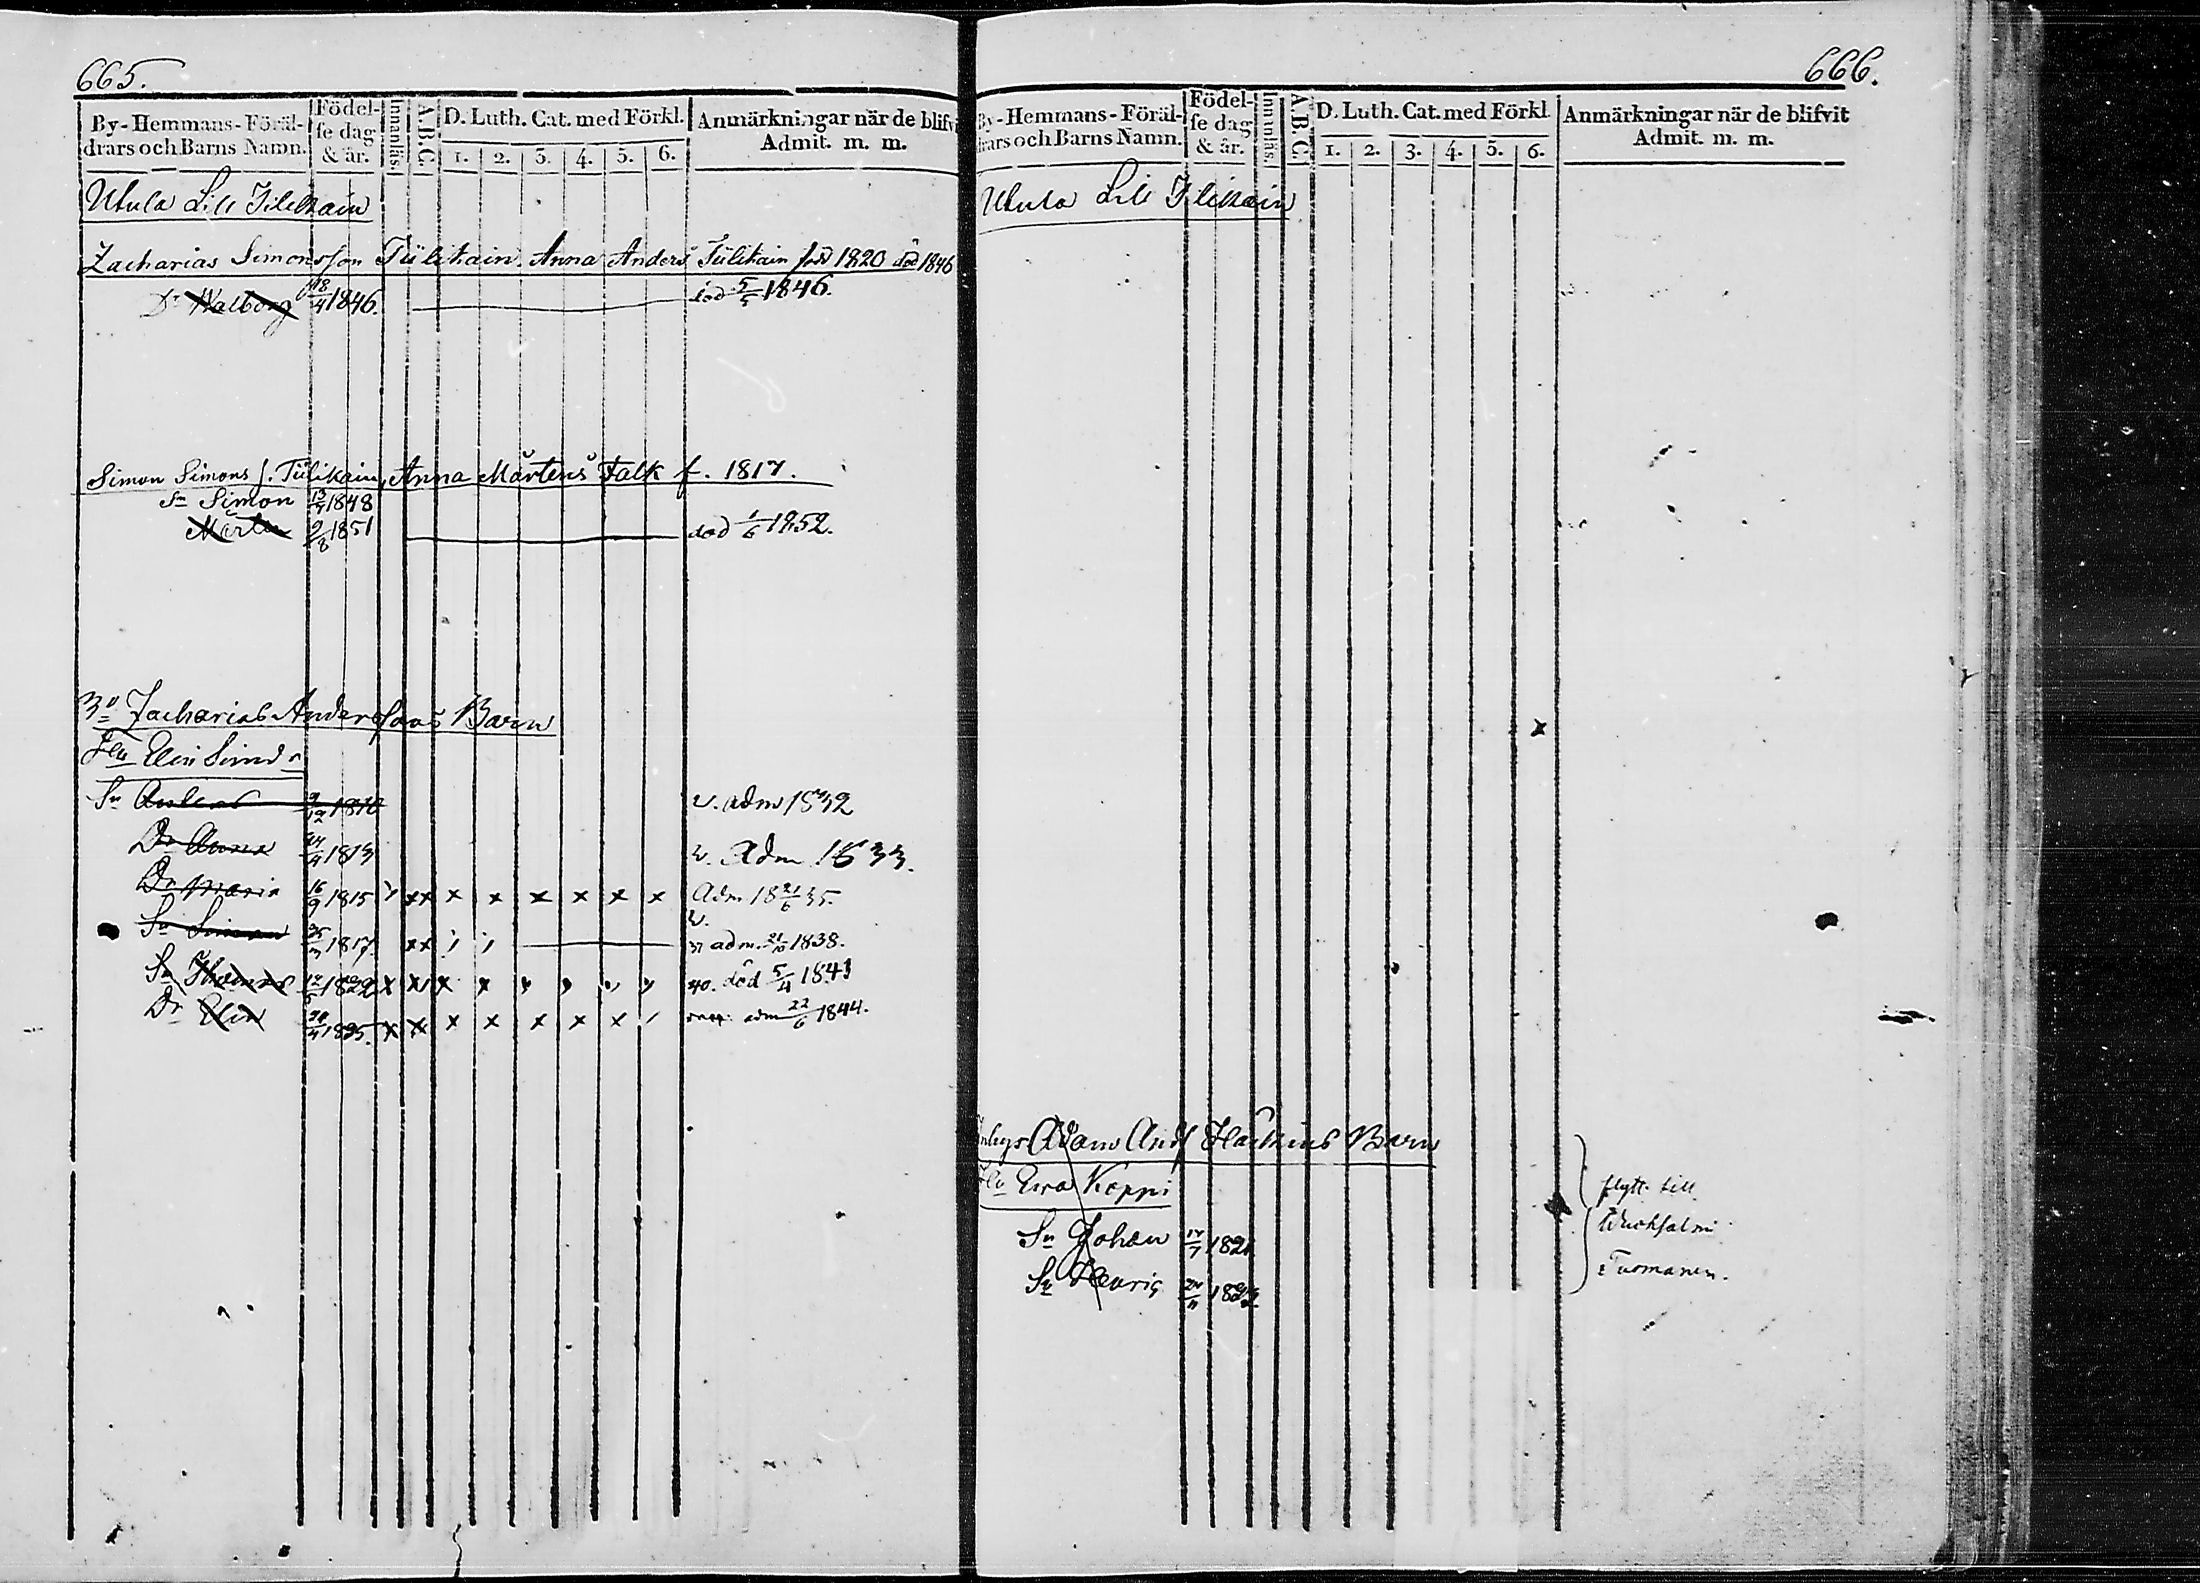 665.
By-Hemmans-Föräl-
drars och Barns Namn.
Födel-
se dag
& är.
Innanläs.
A.B.C.
D. Luth. Cat. med Förkl.
1. 2. 3. 4. 5. 6.
Anmärkningar när de blifvi
Admit. m. m.
Utula Lill Tilikain
Zacharias Simonsson Tülikain. Anna Anders Tülikain född 1820 död 1846
Dr Walborg 18/4 1846. död 5/5 1846.
Simon Simons f. Tülikain, Anna Mårtens Falk f. 1817.
Sn Simon 1848
Mårten 9/8 1851 död 1/6 1852.
3o Zacharias Anderssons Barn
Elin Simsdr
Sn Anders 1810 v. adm 1832
Dr Anna 1813 v. Adm 1833.
Dr Maria 16/9 1815 x x x x x x x x Adm 18 21/6 35.
v.
Sn Simon 1817 x x adm. 21/10 1838.
Sn Thomas 1822 x x x x x 40. död 5/4 1841
Dr Elin 1825. x x x x x x x adm 22/6 1844.
666.
By-Hemmans-Föräl-
drars och Barns Namn.
Födel-
se dag
& är.
Innanläs.
A.B.C.
D. Luth. Cat. med Förkl.
1. 2. 3. 4. 5. 6.
Anmärkningar när de blifvit
Admit. m. m.
Utula Lill Tilikain
x
Inhys Adam Andf Haikins Barn
Ewa Koppi
flytt. till
Sn Johan 1821
Wuoksalmi
Sn Henric 1822
Tuomanen.